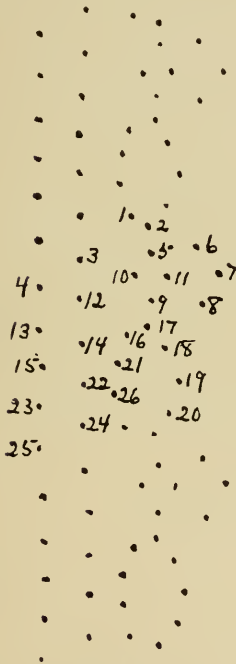 1 2
3 5 6
4 10 11 7
12 9 8
13 14 16 17 18
15 21
22 26 19
23 24 20
25